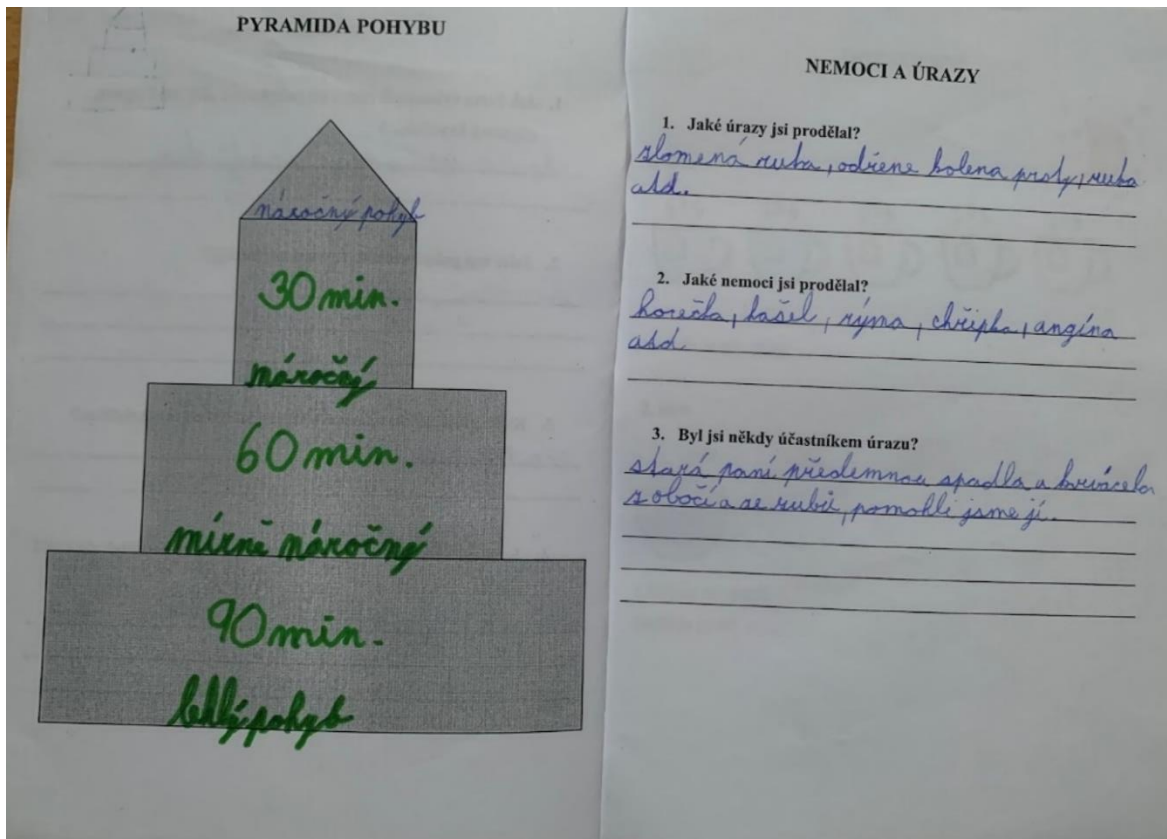 PYRAMIDA POHYBU
náročný pohyb
30 min.
náročný
60 min.
mírně náročný
90 min.
lehký pohyb
NEMOCI A ÚRAZY
1. Jaké úrazy jsi prodělal?
zlomená ruka, odřene kolena prsty, ruka
atd.
2. Jaké nemoci jsi prodělal?
horečka, kašel, rýma, chřipka, angína
atd.
3. Byl jsi někdy účastníkem úrazu?
stará paní předemnou spadla a krvácela
z obočí a ze zubů, pomohli jsme jí.